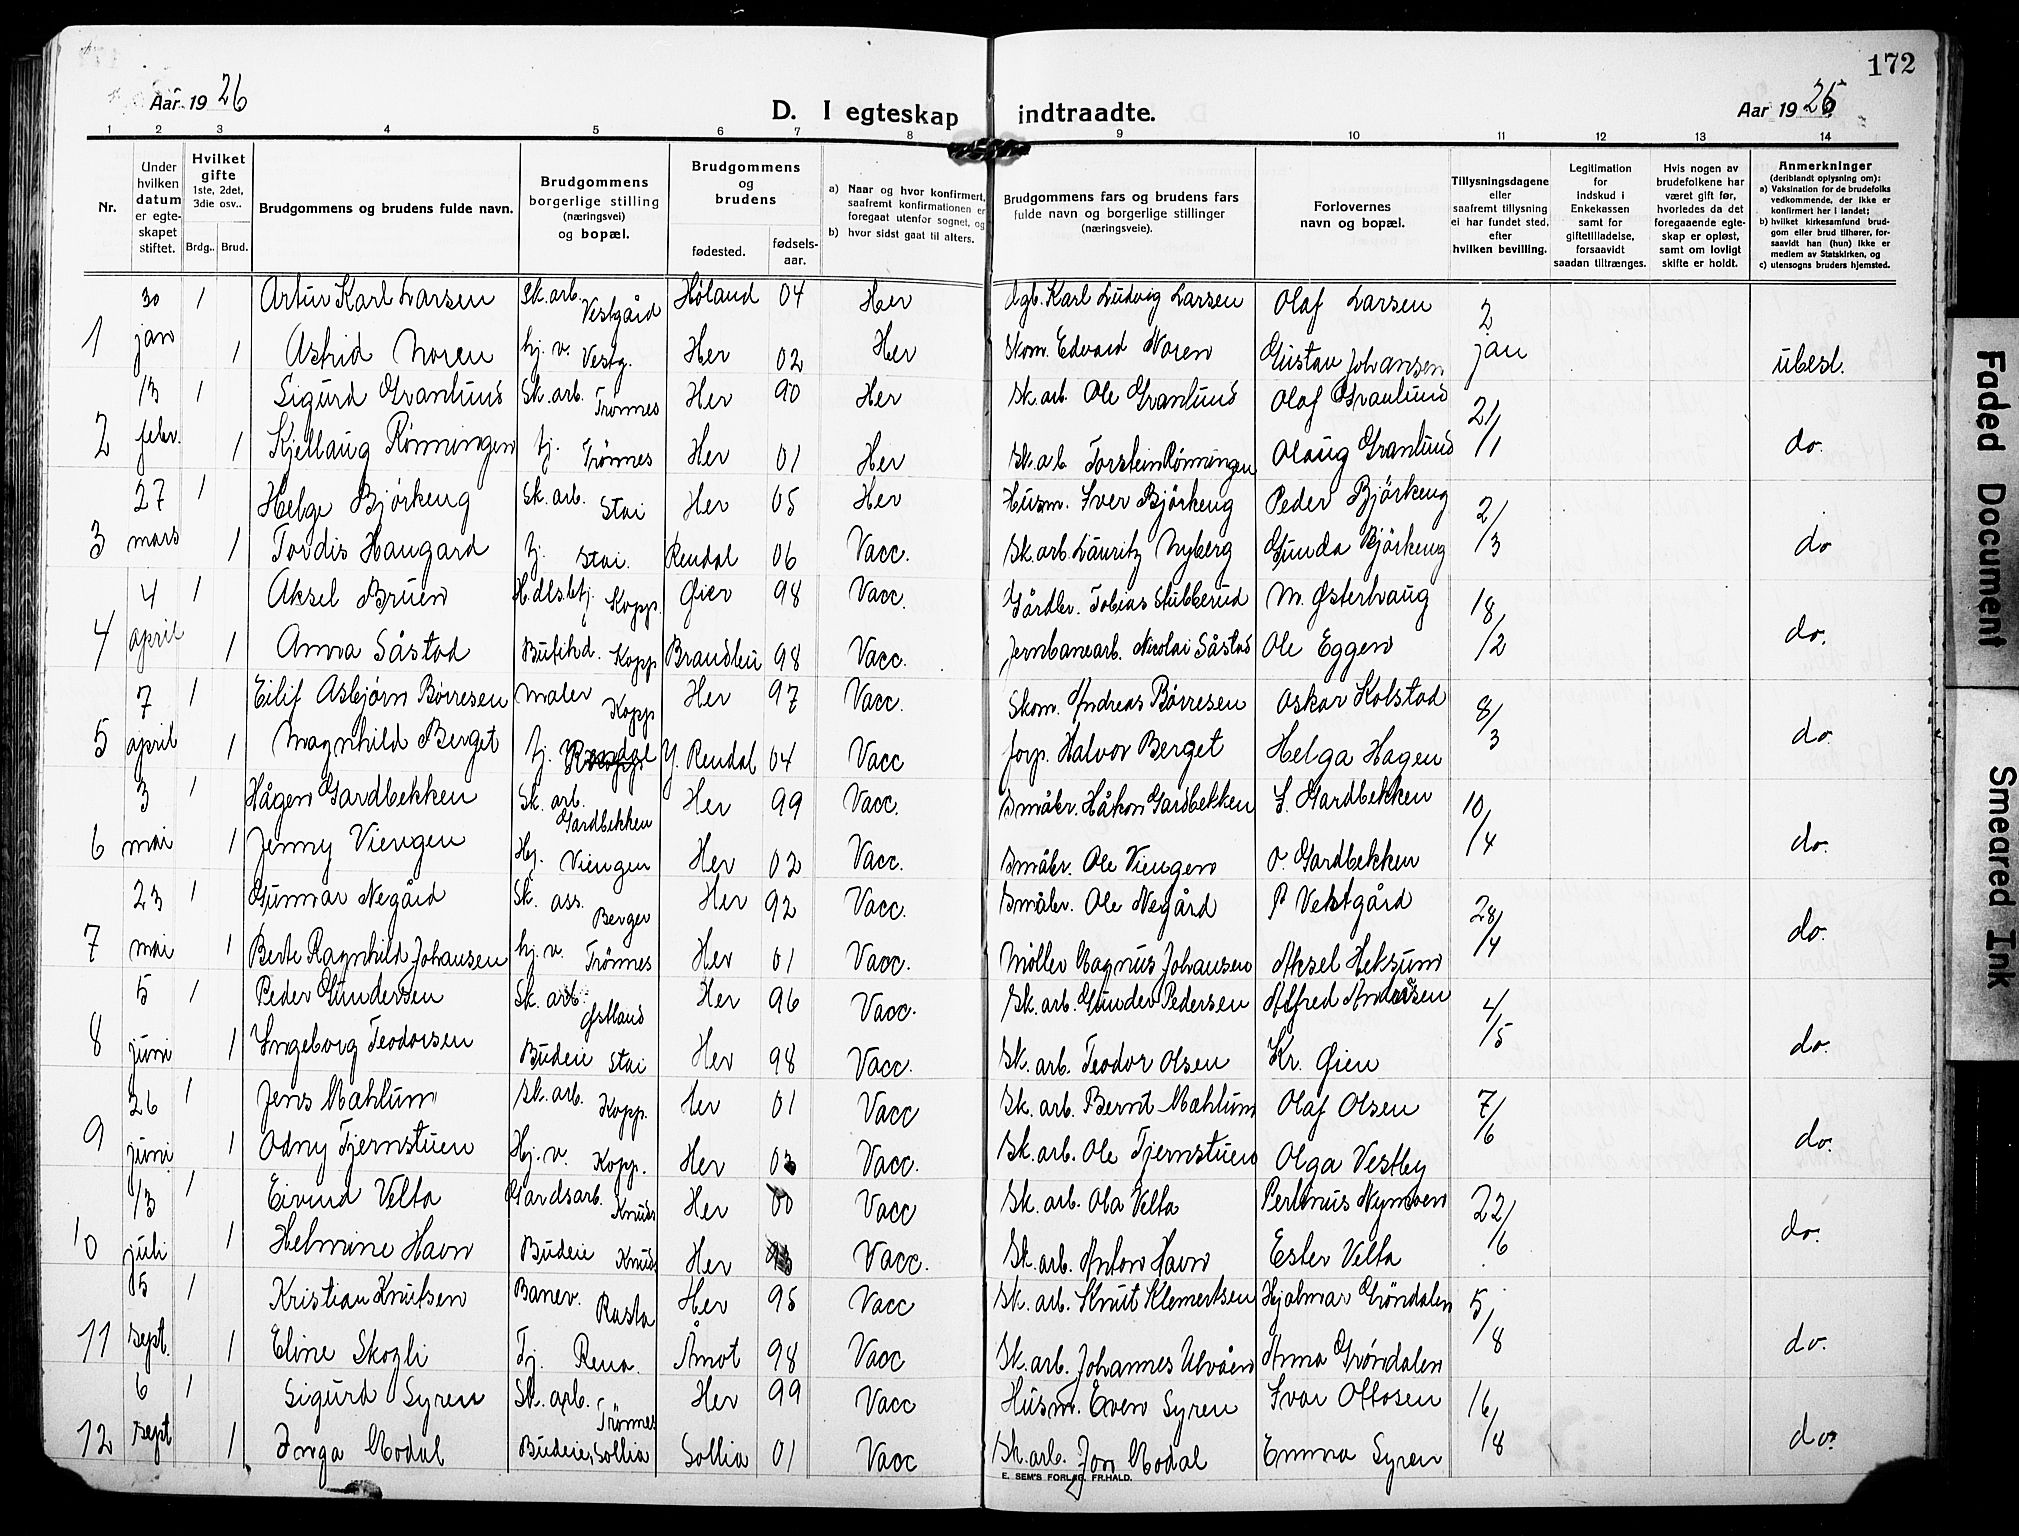 172
Aar 1926
D. I egteskap indtraadte.
Aar 1926
1 2 3 4 5 6 7 8 9 10 11 12 13 14
Nr.
Under hvilken datum er egteskapet stiftet.
Hvilket gifte 1ste, 2det, 3die osv..
Brdg.. Brud.
Brudgommens og brudens fulde navn.
Brudgommens borgerlige stilling (næringsvei) og bopæl.
Brudgommens og brudens
fødested.
fødselsaar.
a) Naar og hvor konfirmert, saafremt konfirmationen er foregaat utenfor sognet, og
b) hvor sidst gaat til alters.
Brudgommens fars og brudens fars fulde navn og borgerlige stillinger (næringsveie).
Forlovernes navn og bopæl.
Tillysningsdagene eller saafremt tillysning ei har fundet sted, efter hvilken bevilling.
Legitimation for indskud i Enkekassen samt for giftetilladelse, forsaavidt saadan tiltrænges.
Hvis nogen av brudefolkene har været gift før, hvorledes da det foregaaende egteskap er opløst, samt om lovligt skifte er holdt.
Anmerkninger (deriblandt oplysning om):
a) Vaksination for de brudefolks vedkommende, der ikke er konfirmert her i landet;
b) hvilket kirkesamfund brudgom eller brud tilhører, forsaavidt han (hun) ikke er medlem av Statskirken, og
c) utensogns bruders hjemsted.
30 1 Artur Karl Larsen Sk.arb. Vestgård Høland 04 Her Dgb. Karl Ludvig Larsen Olaf Larsen 2
1 jan 1 Astrid Noren hj. v. Vestg. Her 02 Her Skom. Edvard Noren Gustav Johansen jan ubesl.
13 1 Sigurd Granlund Sk.arb. Trønnes Her 90 Her Sk.arb. Ole Granlund Olaf Granlund 21
2 febr. 1 Kjellaug Rønningen tj. Trønnes Her 01 Her Sk.arb Torstein Rønningen Olaug Granlund /1 do.
27 1 Helge Bjørkeng Sk.arb. Stai Her 05 Her Husm. Iver Bjørkeng Peder Bjørkeng 2
3 mars 1 Tordis Haugard tj. Stai. Rendal 06 Vacc. Sk.arb. Lauritz Nyberg Gunda Bjørkeng /3 do
4 1 Aksel Bruen H.dlsbtj. Kopp. Øier 98 Vacc. Gårdbr. Tobias Stubberud M. Østerhaug 18
4 april 1 Anna Såstad Butikd. Kopp Brandbu 98 Vacc. Jernbanearb. Nicolai Såstad Ole Eggen /2 do.
7 1 Eilif Asbjørn Børresen Maler Kopp Her 97 Vacc. Skom. Andreas Børresen Oskar Kolstad 8
5 april 1 Magnhild Berget tj. Y. Rendal 04 Vacc forp. Halvor Berget Helga Hagen /3 do
3 1 Hågen Gardbekken Sk. arb. Gardbekken Her 99 Vacc. Småbr. Håkon Gardbekken S. Gardbekken 10
6 mai 1 Jenny Viengen Hj. Viengen Her 02 Vacc. Småbr. Ole Viengen O. Gardbekken /4 do.
23 1 Gunnar Negård Sk. ass. Berger Her 92 Vacc. Småbr. Ole Negård P Vestgård 28
7 mai 1 Berte Ragnhild Johansen hj. v. Trønnes Her 01 Vacc. Møller Magnus Johansen Aksel Heksum /4 do.
5 1 Peder Gundersen Sk. arb. Østland Her 96 Vacc. Sk. arb. Gunder Pedersen Alfred Andersen 4
8 juni 1 Ingeborg Teodorsen Budeie Stai Her 98 Vacc. Sk. arb. Teodor Olsen Kr. Øien /5 do.
26 1 Jens Mæhlum Sk.arb. Kopp. Her 01 Vacc Sk. arb. Bernt Mæhlum Olaf Olsen 7
9 juni 1 Odny Tjernstuen Hj. v. Kopp. Her Vacc. Sk.arb. Ole Tjernstuen Olga Vestby /6 do.
13 1 Eivind Velta Gardsarb. Knuds Her 00 Vacc Sk. arb. Ola Velta Perlinus Nymoen 22
10 juli 1 Helmine Havn Budeie Knuds Her Vacc. Sk. arb. Anton Havn Ester Velta /6 do.
5 1 Kristian Knutsen Banev. Rasta Her 95 Vacc Sk. arb. Knut Klemetsen Hjalmar Grøndalen 5
11 sept. 1 Eline Skogli Tj. Rena Åmot 98 Vacc Sk.arb. Johannes Ulvåen Anna Grøndalen /8 do.
6 1 Sigurd Syren Sk. arb. Trønnes Her 99 Vacc Husm. Even Syren Ivar Ottosen 16
12 sept 1 Inga Modal Budeie, Sollia Sollia 01 Vacc Sk.arb. Jon Modal Emma Syren /8 do.
E. SEM'S FORLAG. FR.HALD.
Faded Document
Smeared Ink